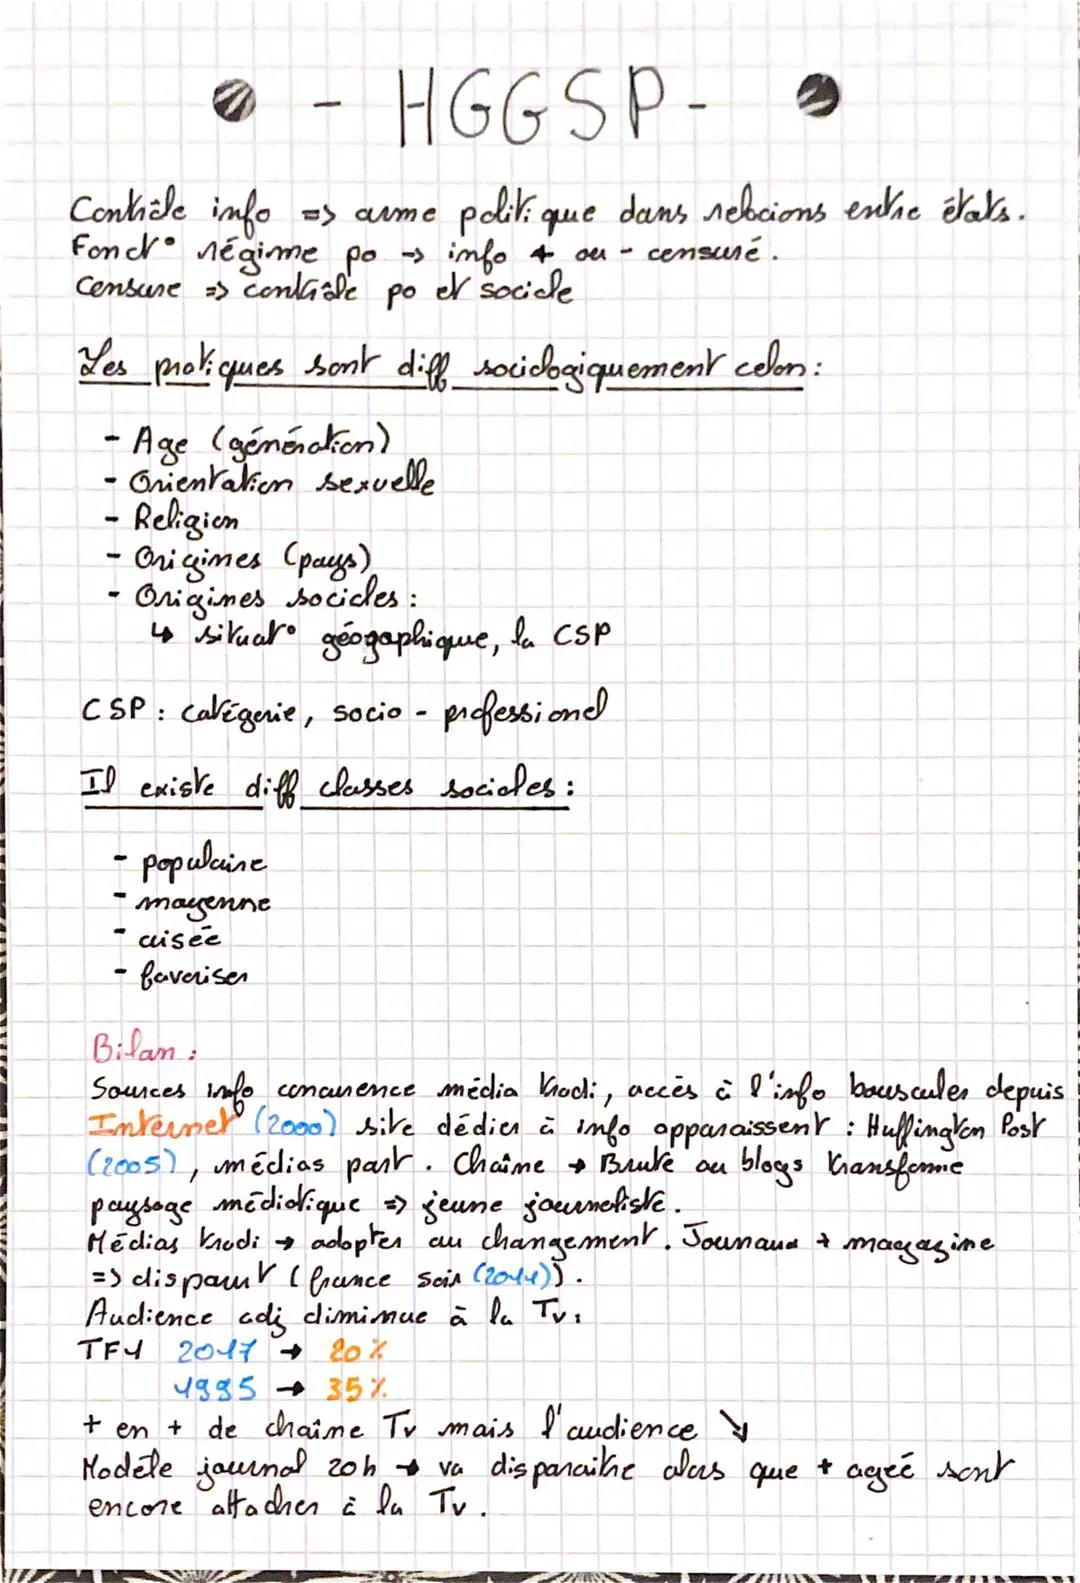 - HGGSP -
Contrôle info => arme politique dans relations entre états.
Fonct° régime po → info + ou - censuré.
Censure => contrôle po et sociale
Les pratiques sont diff sociologiquement celon :
- Age (génération)
- Orientation sexuelle
- Religion
- Origines (pays)
- Origines sociales :
↳ situat° géogaphique, la CSP
CSP : catégorie, socio - professionel
Il existe diff classes sociales :
- populaire
- moyenne
- aisée
- favoriser
Bilan :
Sources info concurence média tradi, accès à l'info bousculer depuis
Internet (2000) site dédier à info apparaissent : Huffington Post
(2005), médias part. Chaîne → Brute ou blogs transforme
paysage médiatique => jeune journaliste.
Médias tradi → adapter au changement. Jounaux + magazine
=> disparaut (france soir (2011)).
Audience adj diminue à la Tv :
TF1 2017 → 20%
1995 → 35%
+ en + de chaîne Tv mais l'audience ↘
Modèle journal 20h → va disparaitre alors que + ageé sont
encore attacher à la Tv.